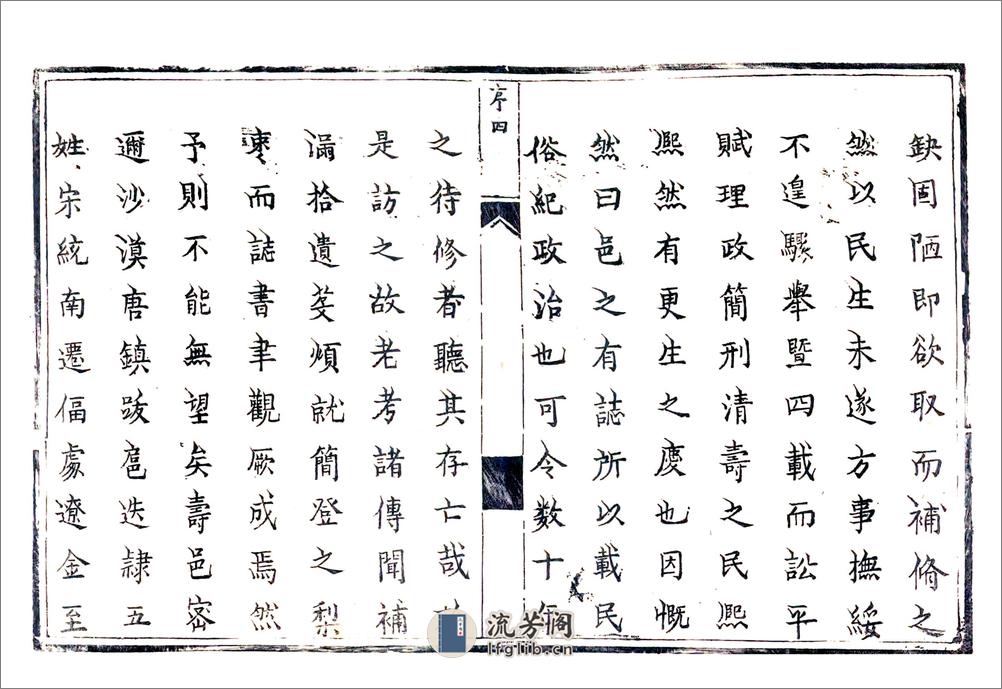 缺固陋即欲取而補脩之
然以民生未遂方事撫綏
不遑驟舉暨四載而訟平
賦理政簡刑清壽之民熈
熈然有更生之慶也因慨
然曰邑之有誌所以載民
俗紀政治也可令数十年
序四
之待修者聽其存亡哉
是訪之故老考諸傳聞補
漏拾遺芟煩就簡登之梨
棗而誌書聿觀厥成焉然
予則不能無望矣壽邑密
邇沙漠唐鎮跋扈迭隷五
姓宋統南遷偪處遼金至
流芳阁
lfglib.cn